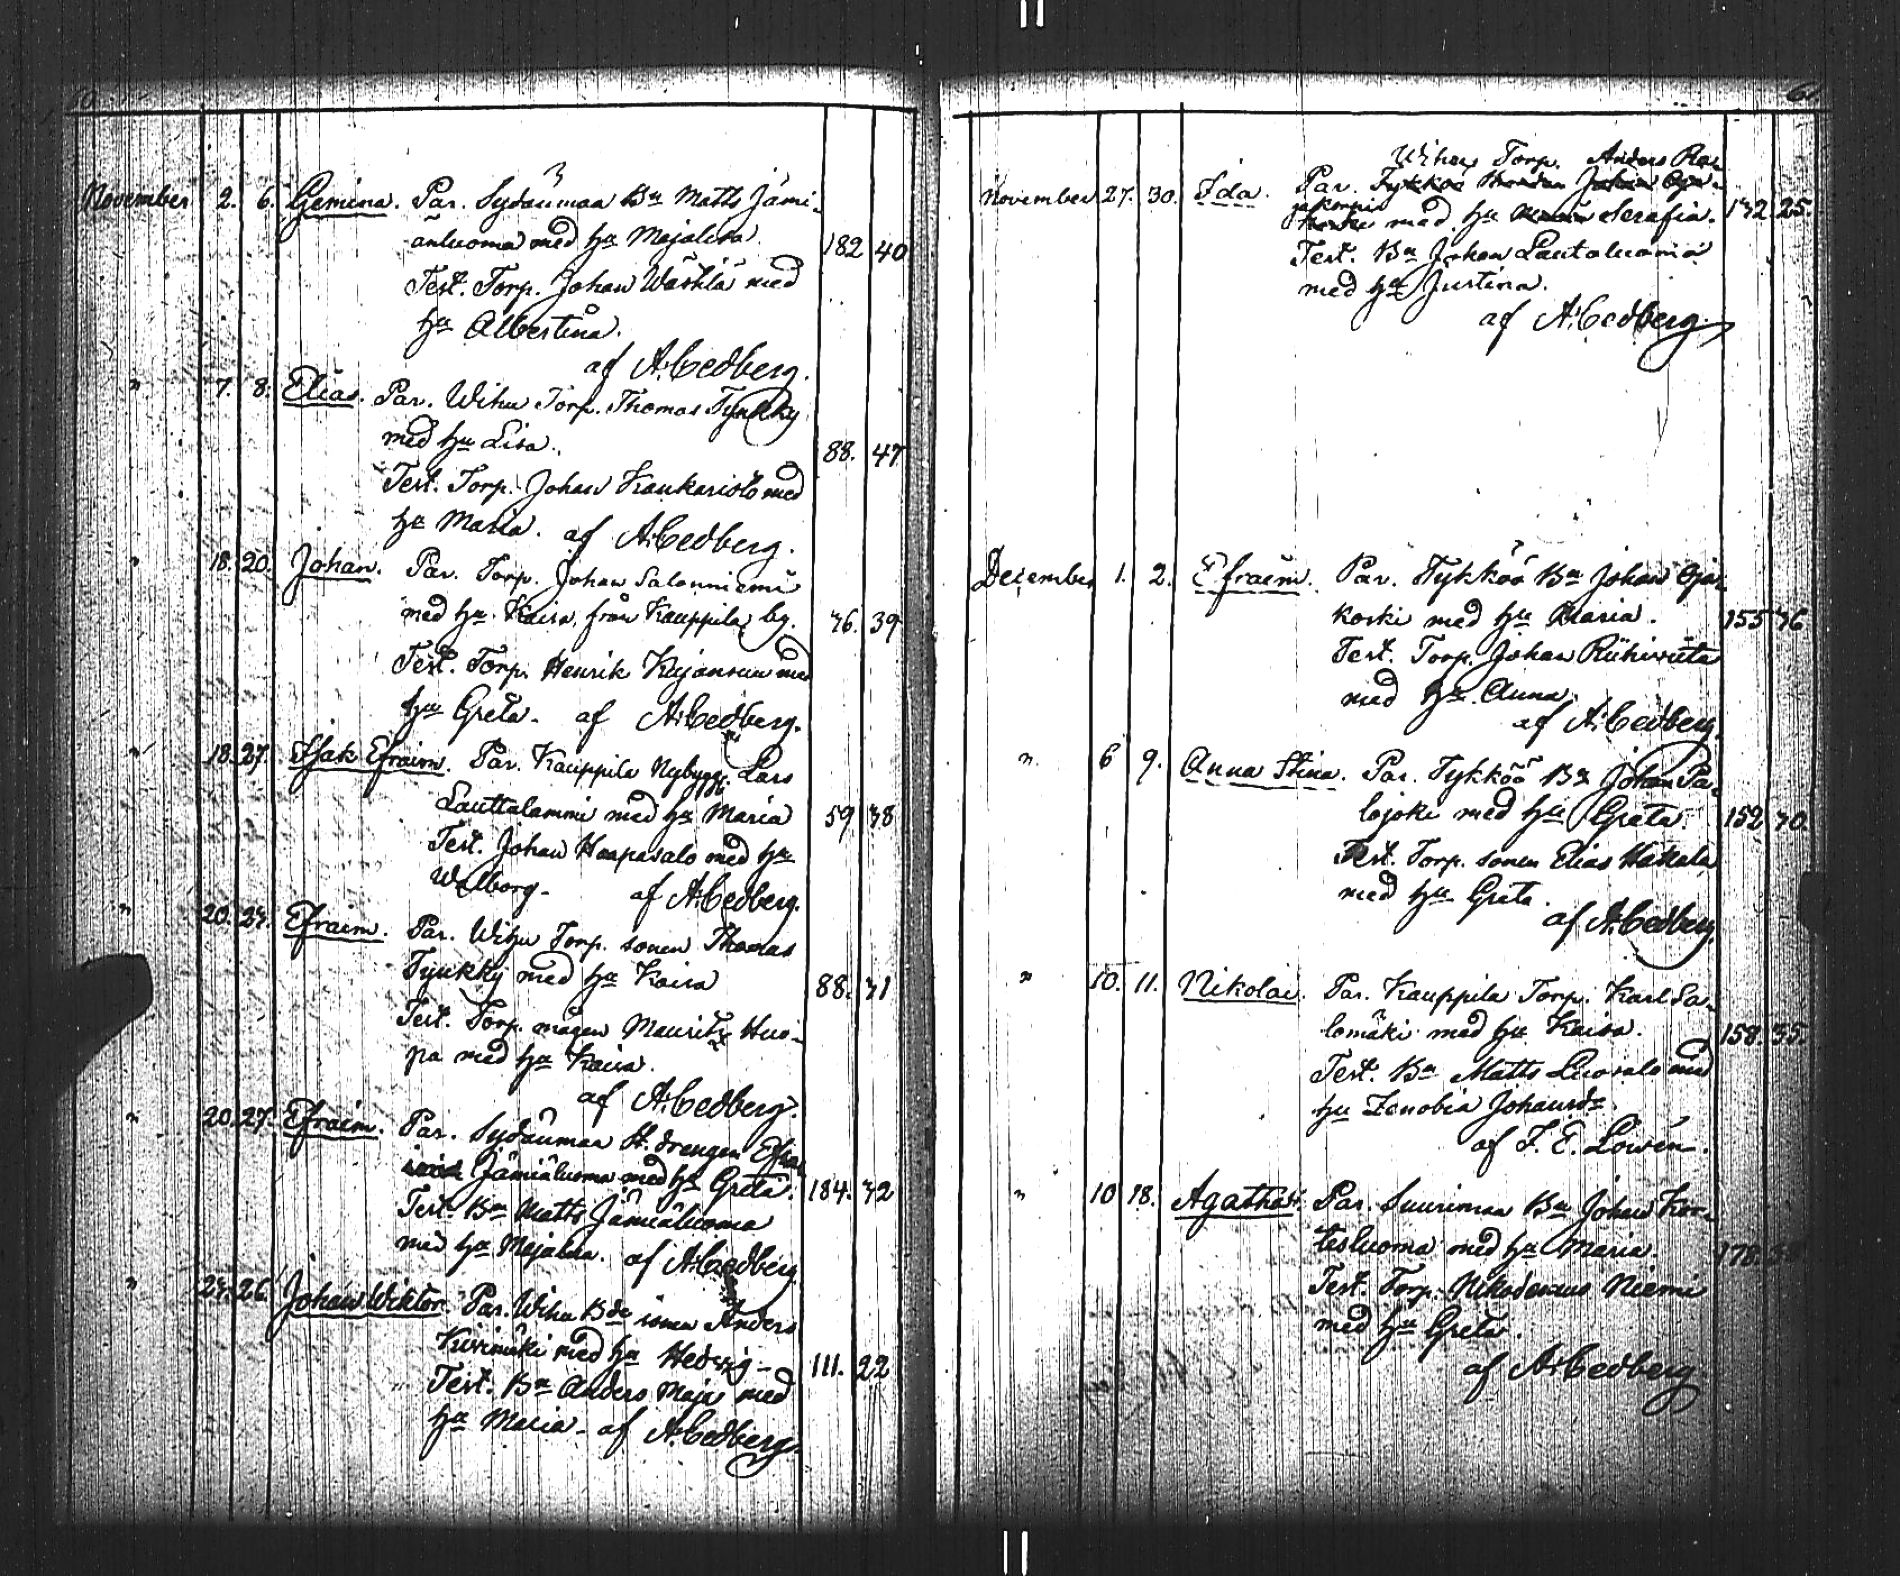 November 2. 6. Gemina. Par. Sydänmaa Bn Matts Jämi-
änluoma med hu Majalisa. 182 40
Test. Torp. Johan Wästilä med
hu Albertina.
af A. Cedberg.
" 7. 8. Elias. Par. Wihu Torp. Thomas Tynkky
med hu Lisa. 88. 47
Test. Torp. Johan Kankaristo med
hu Maria. af A. Cedberg.
" 18. 20. Johan. Par. Torp. Johan Salonniemi
med hu Kaisa, från Kauppila by. 76. 39
Test. Torp. Henrik Kujansuu med
hu Greta. af A. Cedberg.
" 18. 27. Isak Efraim. Par. Kauppila Nybygg. Lars
Lauttalammi med hu Maria 59 78
Test. Johan Haapasalo med hu
Walborg. af A. Cedberg.
" 20. 24. Efraim. Par. Wihu Torp. sonen Thomas
Tynkky med hu Kaisa 88. 71
Test. Torp. mågen Maurits Huo-
pa med hu Kaisa.
af A. Cedberg.
" 20. 27. Efraim. Par. Sydänmaa St. drengen Efra-
Jämiäluoma med hu Greta. 184. 72
Test. Bn Matts Jämiäluoma
med hu Majalisa. af A. Cedberg
" 24. 26. Johan Wiktor. Par. Wihu Bde sonen Anders
Kiviniski med hu Hedvig 111. 22
Test. Bn Anders Maja med
hu Maria. af A. Cedberg.
Wihu Torp. Anders Ra-
November 27. 30. Ida. Par. Tykköö Johan Oja-
jakorpi koski med hu Serafia. 172 25.
Test. Bn Johan Lautaluoma
med hu Justina.
af A. Cedberg.
December 1. 2. Efraim. Par. Tykköö Bn Johan Oja-
koski med hu Maria. 155 76
Test. Torp. Johan Riihiviita
med hu Anna.
af A. Cedberg.
" 6 9. Anna Stina. Par. Tykköö Bn Johan Pa-
lojoki med hu Greta. 152 70.
Test. Torp. sonen Elias Hakala
med hu Greta.
af A. Cedberg.
" 10. 11. Nikolai. Par. Kauppila Torp. Karl Sa-
lomäki med hu Kaisa. 158. 35.
Test. Bn Matts Luosalo med
hu Zenobia Johansdr.
af F. E. Lowén.
" 10 18. Agatha. Par. Suurimaa Bn Johan Kor-
tesluoma med hu Maria. 178.
Test. Torp. Nikodemus Niemi
med hu Greta.
af A. Cedberg